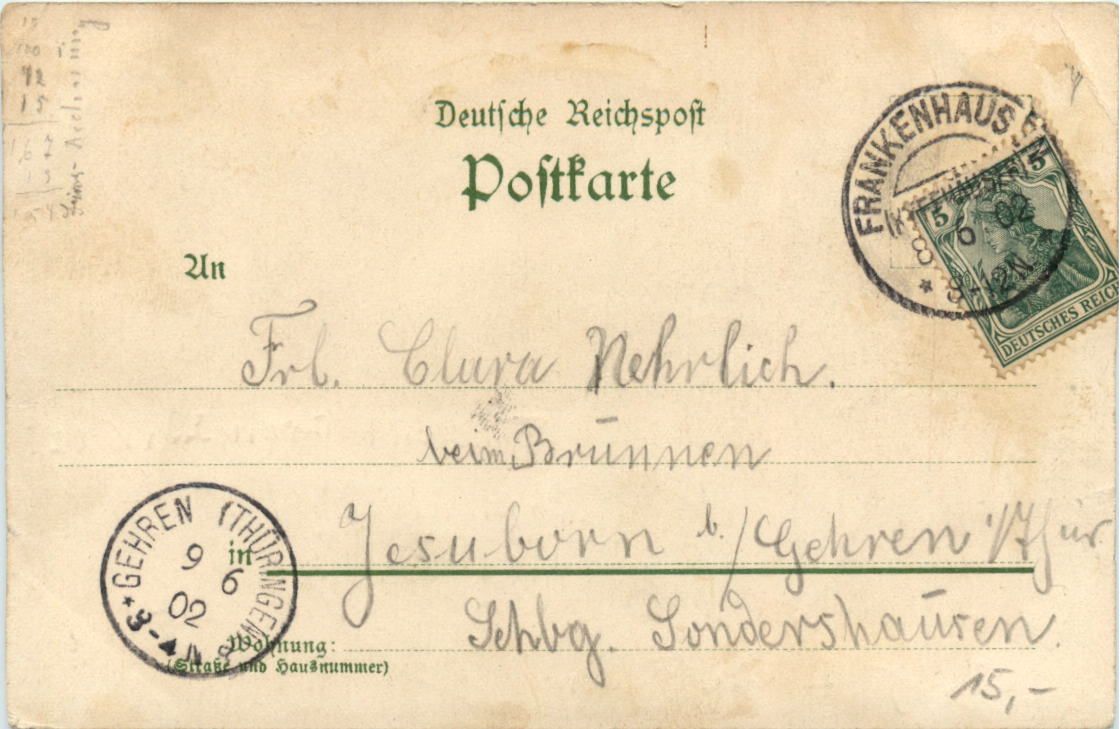 Deutsche Reichspost
Postkarte
FRANKENHAUSEN
(KYFFHÄUSER)
8 6 02
* 8-12N.
5 5
DEUTSCHES REICH
An
Frl. Clara Nehrlich.
beim Brunnen
in Jesuborn b./Gehren i/Thür
Schbg. Sondershausen.
GEHREN (THÜRINGEN)
9 6
02
Wohnung:
(Straße und Hausnummer)
15,-
12
15